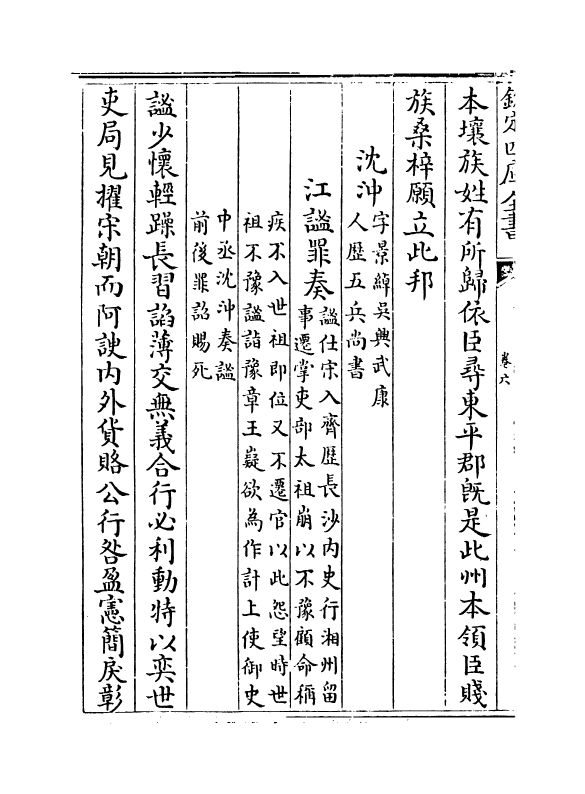 欽定四庫全書
卷六
本壤族姓有所歸依臣尋東平郡既是此州本領臣賤
族桑梓願立此邦
沈沖字景綽吳興武康
人歴五兵尚書
江謐罪奏謐仕宋入齊歴長沙内史行湘州留
事遷掌吏部太祖崩以不豫顧命稱
疾不入世祖即位又不遷官以此怨望時世
祖不豫謐詣豫章王嶷欲為作計上使御史
中丞沈沖奏謐
前後罪詔賜死
謐少懷輕躁長習諂薄交無義合行必利動特以奕世
吏局見擢宋朝而阿諛内外貨賂公行咎盈憲簡戾彰